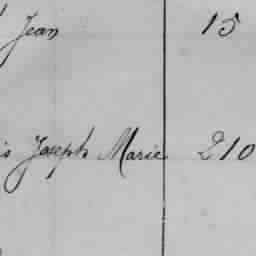 Jean 15
Joseph Marie 210